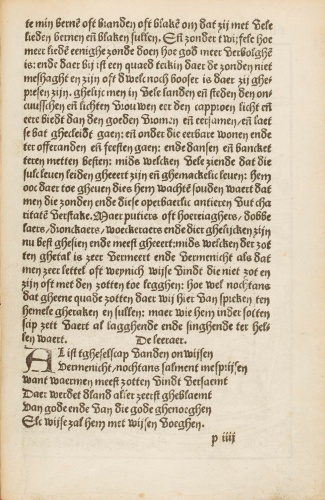 te min bernē oft branden oft blakē om dat zij met vele
lieden bernen eñ blaken sullen. Eñ zonder twijfele hoe
meer lieden eenighe zonde doen hoe god meer verbolghē
is: ende daer bij ist een quaed teikin daer de zonden niet
meshaght en zijn oft dwelc noch booser is daer zij ghe-
presen zijn. ghelijc men in vele landen en steden den on-
cuusschen eñ lichten vrouwen eer den capproen licht eñ
eere biedt dan den goeden vromen eñ eersamen/ eñ laet
se bat ghecleidt gaen: eñ onder die eerbare wonen ende
ter offeranden eñ feesten gaen: ende dansen eñ bancket
teren metten besten: mids welcken vele ziende dat die
sulc leuen leiden gheeert zijn eñ ghemackelic leuen: hem
ooc daer toe gheuen dies hem wachtē souden waert dat
men die zonden ende diese operbaerlic antieren vut cha
ritatē verstake. Maer putiers oft hoereiaghers/ dobbe
laers/ dronckaers/ woeckeraers ende dier ghelijcken zijn
nu best ghesien ende meest gheeert: mids welcken der zot
ten ghetal is zeer vermeert ende vermenicht als dat
men zeer lettel oft weynich wijse vindt die niet zot en
zijn oft met den zotten toe legghen: hoe wel nochtans
dat gheene quade zotten daer wij hier van spreken ten
hemele gheraken en sullen: maer wie hem inder sotten
scip zett vaert al lagghende ende singhende ter hel-
len waert. De leeraer.
Al ist tgheselscap vanden onwijsen
Vermenicht/ nochtans salment mesprijsen
want waermen meest zotten vindt versaemt
Daer werdet dland alder zeerst gheblaemt
Van gode ende van die gode ghenoeghen
Elc wijse zal hem met wijsen voeghen.
p iiij